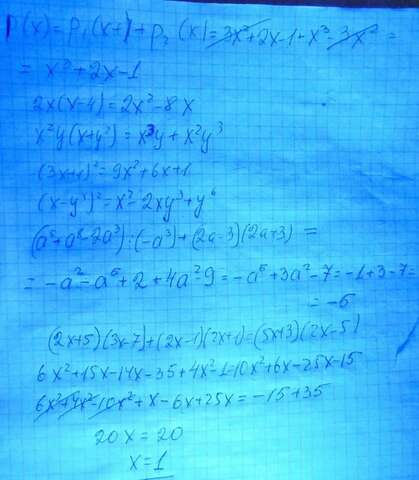 P(x)=P₁(x+)+P₂(x)=3x²+2x-1+x³-3x²=
=x³+2x-1
2x(x-4)=2x²-8x
x²y(x+y²)=x³y+x²y³
(3x+1)²=9x²+6x+1
(x-y³)²=x²-2xy³+y⁶
(a⁵+a⁸-2a³):(-a³)+(2a-3)(2a+3)=
=-a²-a⁵+2+4a²-9=-a⁵+3a²-7=-1+3-7=
=-5
(2x+5)(3x-7)+(2x-1)(2x+1)=(5x+3)(2x-5)
6x²+15x-14x-35+4x²-1=10x²+6x-25x-15
6x²+4x²-10x²+x-6x+25x=-15+35
20x=20
x=1